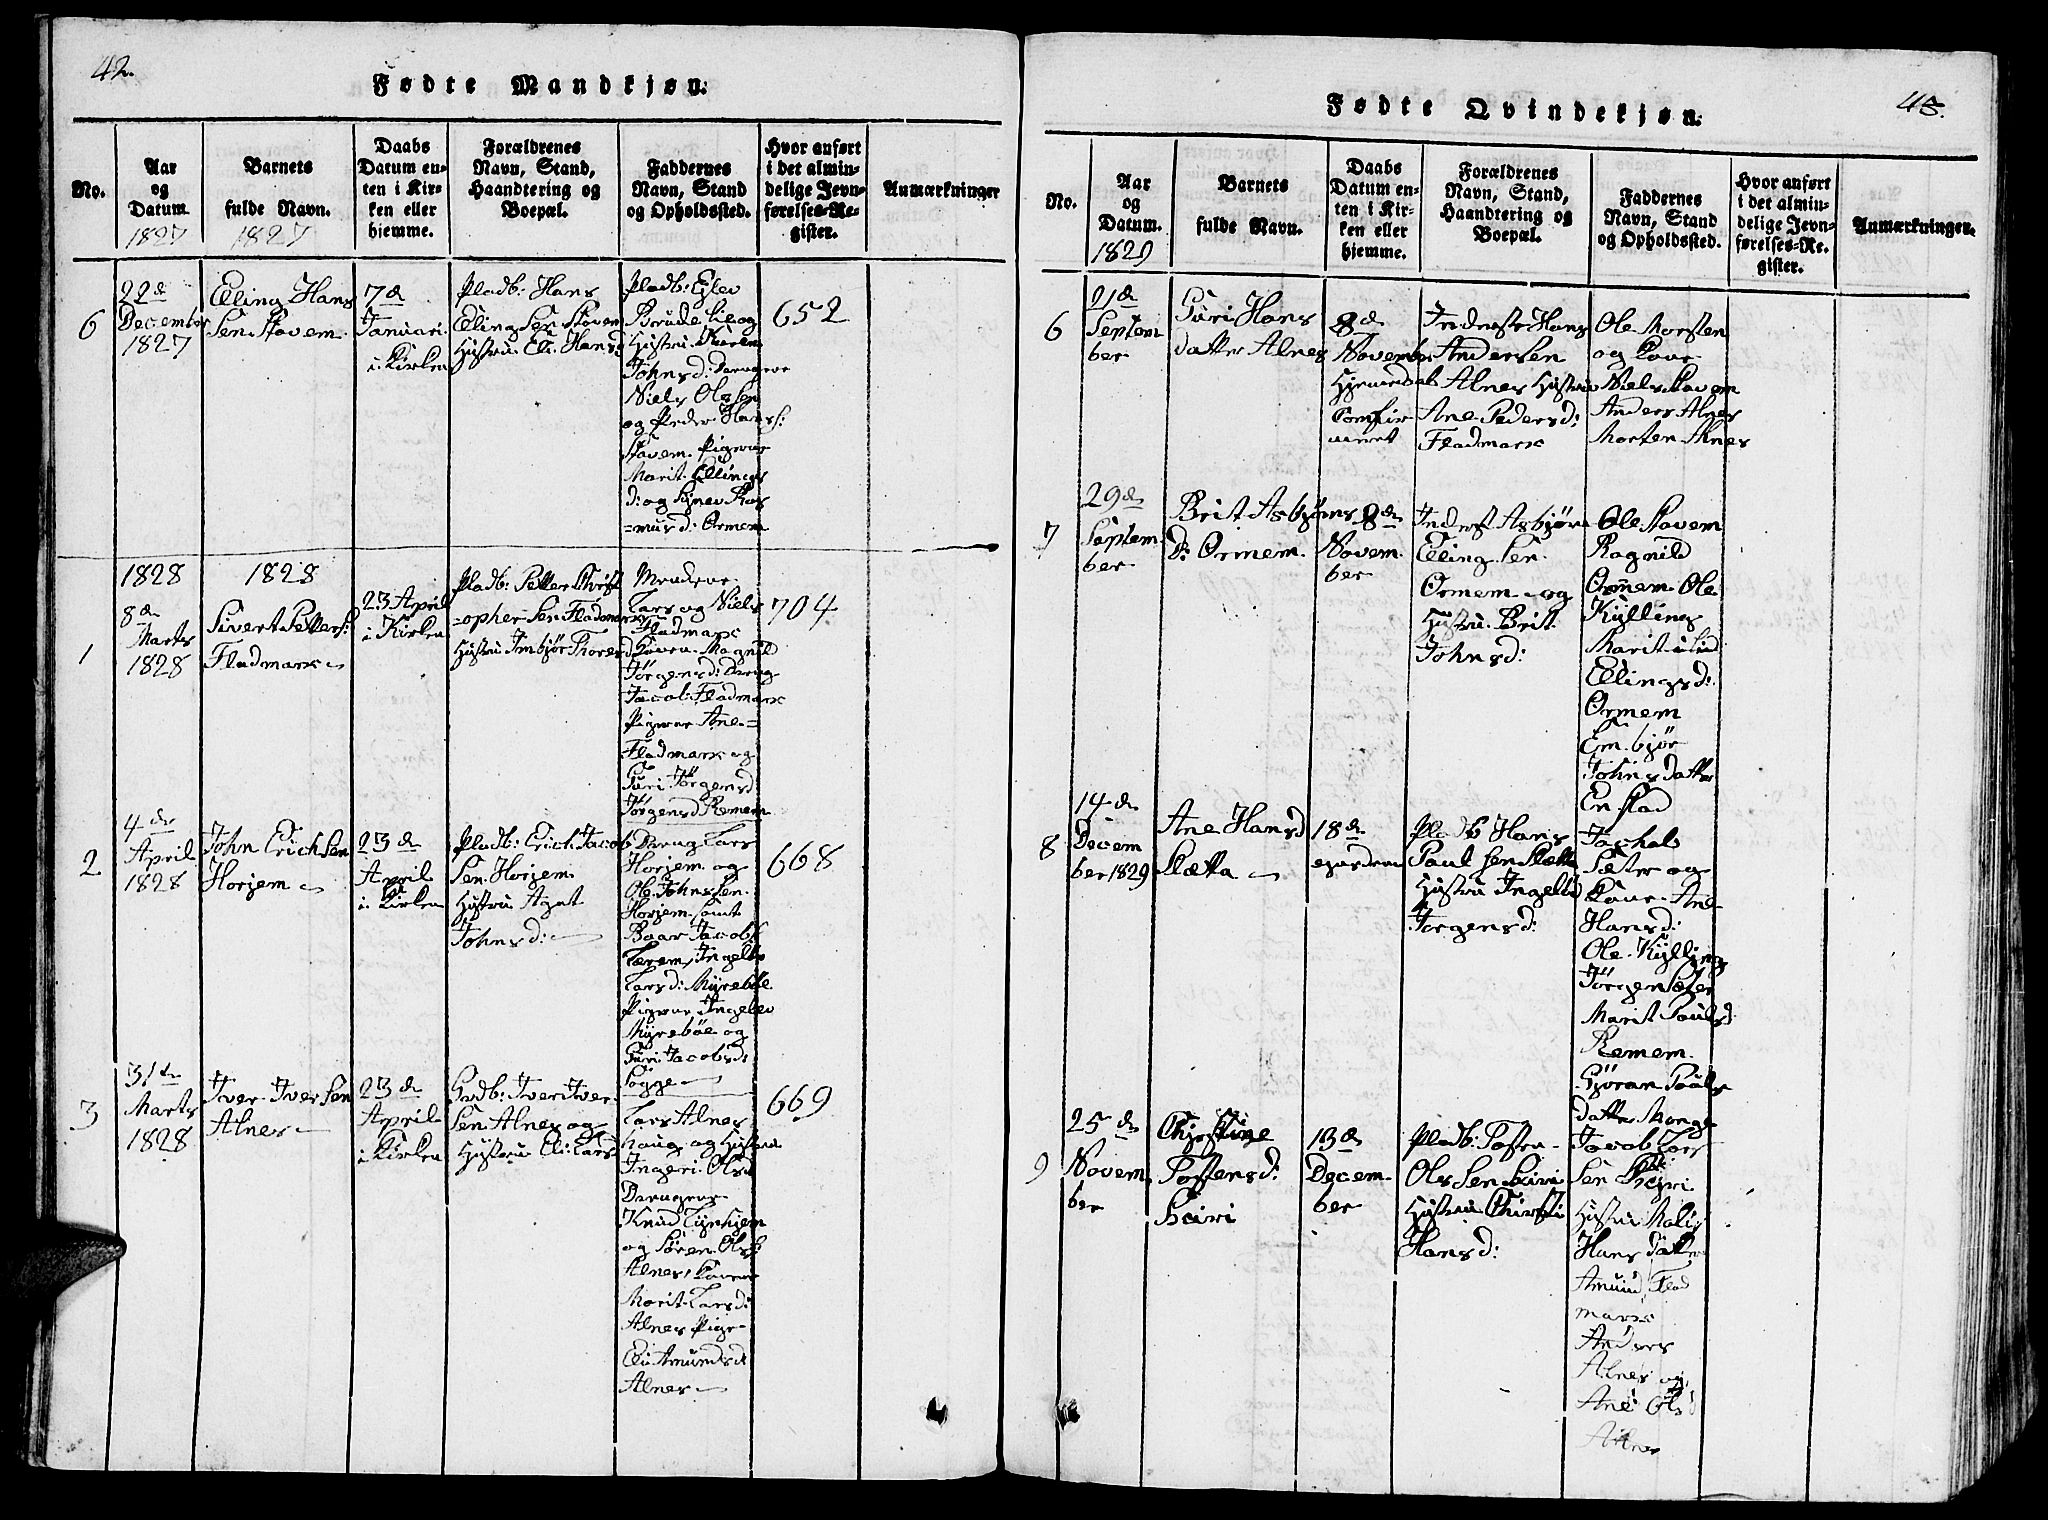 42.
Fødte Mandkjøn.
No.
Aar
og
Datum
1827
Barnets
fulde Navn.
1827
Daabs
Datum en-
ten i Kir-
ken eller
hjemme.
Forældrenes
Navn, Stand,
Haandtering og
Boepæl.
Faddernes
Navn, Stand
og Opholdssted.
Hvor anført
i det almin-
delige Jevn-
førelses-Re-
gister.
Anmærkninger
6
22de
December
1827
Elling Hans
Sen Stavem
7de
Januari
i Kirken
Pladb: Hans
Elling Sen Stavem
Hustru Eli Hansd
Pladb:
og
Hustru Karen
Johnsd:
Niels Olsen
og Peder Hans:
Stavem Pigerne
Marit Ellings
d: og Ras
=mus d: Ormem
652
1828
1828
1
8de
Marts
1828
Sivert Petters:
Fladmark
23 April
i Kirken
Pladb: Petter Christ
=opher Sen Fladmark
Hustru Imbjør Thores d
Mendene
Lars og Niels
Fladmark
Kaaen Magnild
Jörgensd: Dreng
Jacob Fladmark
Pigerne Ane
Fladmark og
Guri Jörgensd
Jörgensd Remem
704
2
4de
April
1828
John Erichsen
Horjem
23de
April
i Kirken
Pladb: Erich Jacob
Sen Horjem
Hustru Agat
Johnsd:
Dreng Lars
Horjem og
Ole Johnssen
Horjem samt
Baar Jacobs:
Ingelev
Larsd: Myrebøe
Pigerne Ingelev
Myrebøe og
Guri Jacobsd:
Sogge
668
3
31te
Marts
1828
Iver Iversen
Alnes
23de
April
i Kirken
Gvdb: Iver Iver
Sen Alnes og
Hustru Eli Larsd
Lars Alnes
haug og Hustru
Ingeri Olsd
Drengene
Knud
og Søren Ols:
Alnes, Kaaen
Marit Larsd:
Alnes Pige
Eli Amundsd
Alnes
669
43.
Fødte Qvindekjøn.
No.
Aar
og
Datum.
1829
Barnets
fulde Navn.
Daabs
Datum en-
ten i Kir-
ken eller
hjemme.
Forældrenes
Navn, Stand,
Haandtering og
Boepæl.
Faddernes
Navn, Stand
og Opholdssted.
Hvor anført
i det almin-
delige Jevn-
førelses-Re-
gister.
Anmærkninger.
6
21de
Septem
ber
Guri Hans
datter Alnes
8de
November
Hjemedøbt
Comfir
meret
Inderste Hans
Andersen
Alnes Hustru
Ane Pedersd:
Fladmark
Ole Morsten
og Kone
Niels Stavem
Anders Alnes
Morten Alnes
7
29de
Septem
ber
Brit Asbjørns
d: Ormem
8de
Novem
ber
Inderst Asbjørn
Elling Sen
Ormem og
Hustru Brit
Johnsd:
Ole Stavem
Ragnild
Ormem Ole
Kylling
Marit
Ellingsd:
Ormem
Embjør
Johnsdatter
Enstad
8
14de
Decem
ber 1829
Ane Hansd
Slætta
18de
Pladb Hans
Paul sen Slætta
Hustru Ingelev
Jorgensd:
Jachob
Sæter og
Kone Ane
Hansd:
Ole Kylling
Jörgen Sæter
Marit Poulsd:
Remem
Gjöran Pouls
datter Monge
9
25de
Novem
ber
Christine
Tostensd:
Skiri
13de
Decem
ber
Pladb: Tosten
Ols Sen Skiri
Hustru Christi
Hansd:
Jacob Lars
Sen Skiri
Hustru Mali
Hansdatter
Amund Flad
mark
Anders
Alnes og
Ane Ols d
Alnes